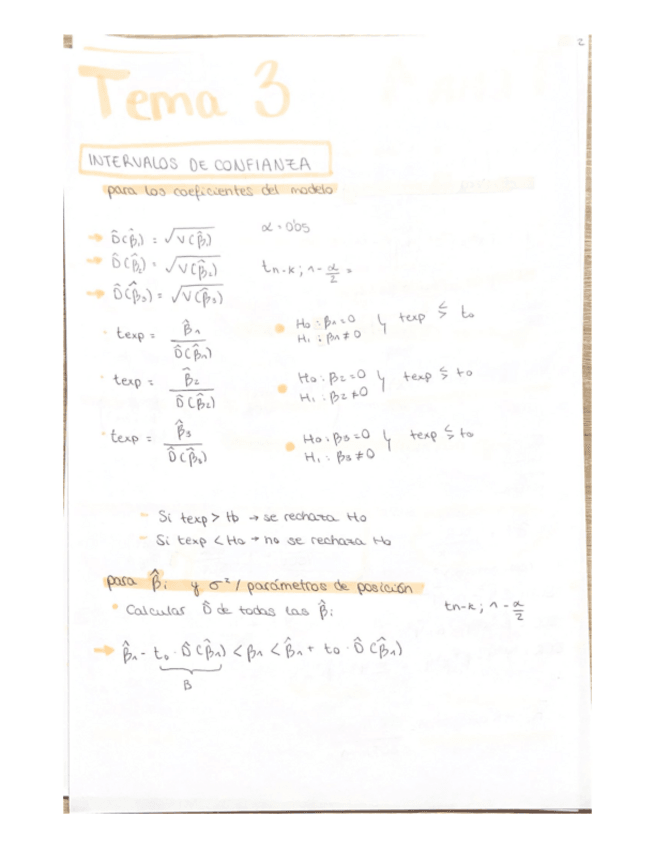 2
Tema 3
INTERVALOS DE CONFIANZA
para los coeficientes del modelo
→ D̂(β̂₁) = √V(β̂₁)   α = 0'05
→ D̂(β̂₂) = √V(β̂₂)   tn-k ; 1 - α/2 =
→ D̂(β̂₃) = √V(β̂₃)
• texp = β̂₁ / D̂(β̂₁)   • H₀ : β₁ = 0 } texp ≶ t₀
H₁ : β₁ ≠ 0
• texp = β̂₂ / D̂(β̂₂)   • H₀ : β₂ = 0 } texp ≶ t₀
H₁ : β₂ ≠ 0
• texp = β̂₃ / D̂(β̂₃)   • H₀ : β₃ = 0 } texp ≶ t₀
H₁ : β₃ ≠ 0
- Si texp > tb → se rechaza H₀
- Si texp < H₀ → no se rechaza H₀
para β̂ᵢ y σ² / parámetros de posición
• Calcular D̂ de todas las β̂ᵢ   tn-k ; 1 - α/2
→ β̂₁ - t₀ · D̂(β̂₁) < β₁ < β̂₁ + t₀ · D̂(β̂₁)
B